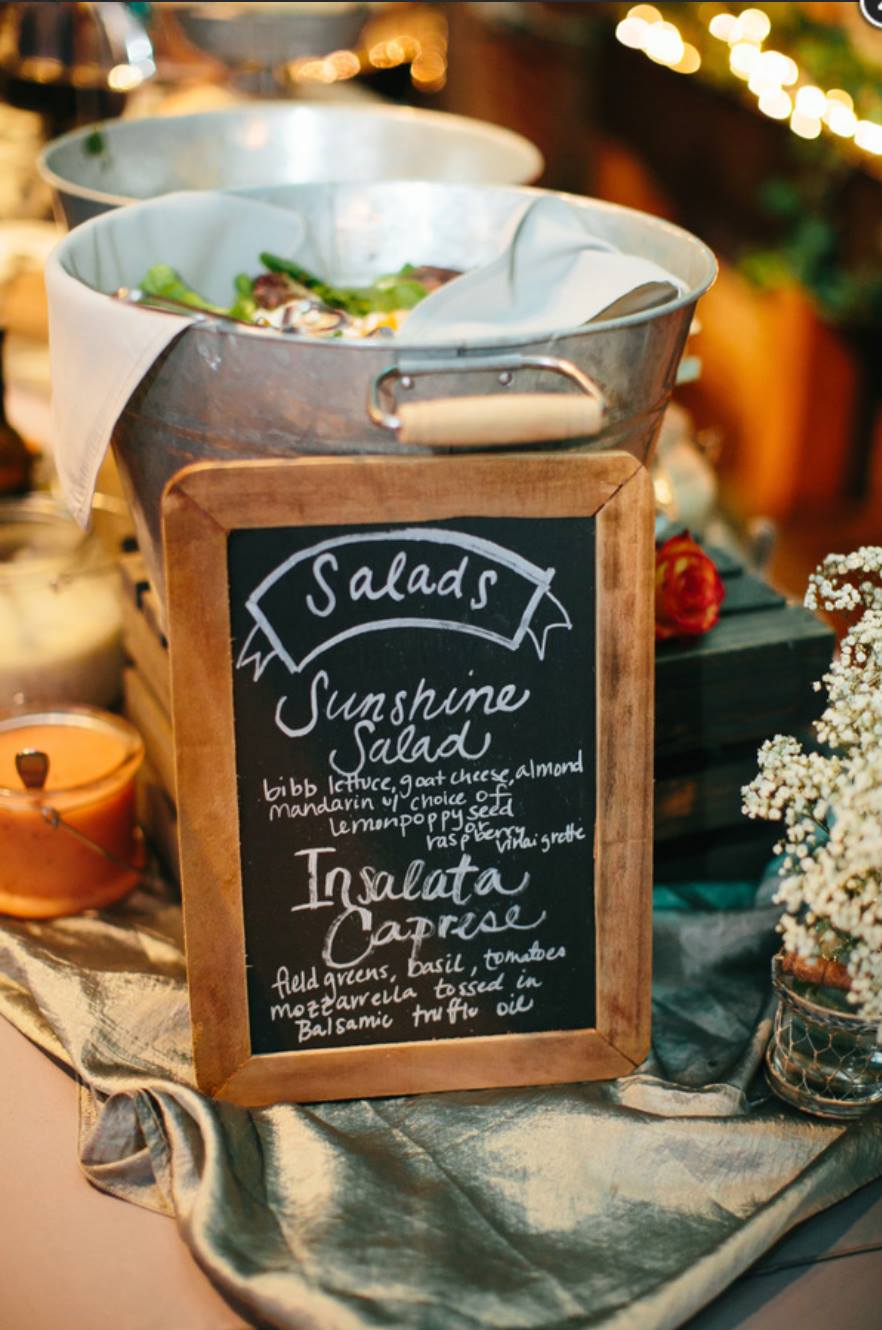 Salads
Sunshine
Salad
bibb lettuce, goat cheese, almond
mandarin w/ choice of
lemonpoppyseed
or
raspberry vinaigrette
Insalata
Caprese
field greens, basil, tomatoes
mozzarrella tossed in
Balsamic truffle oil